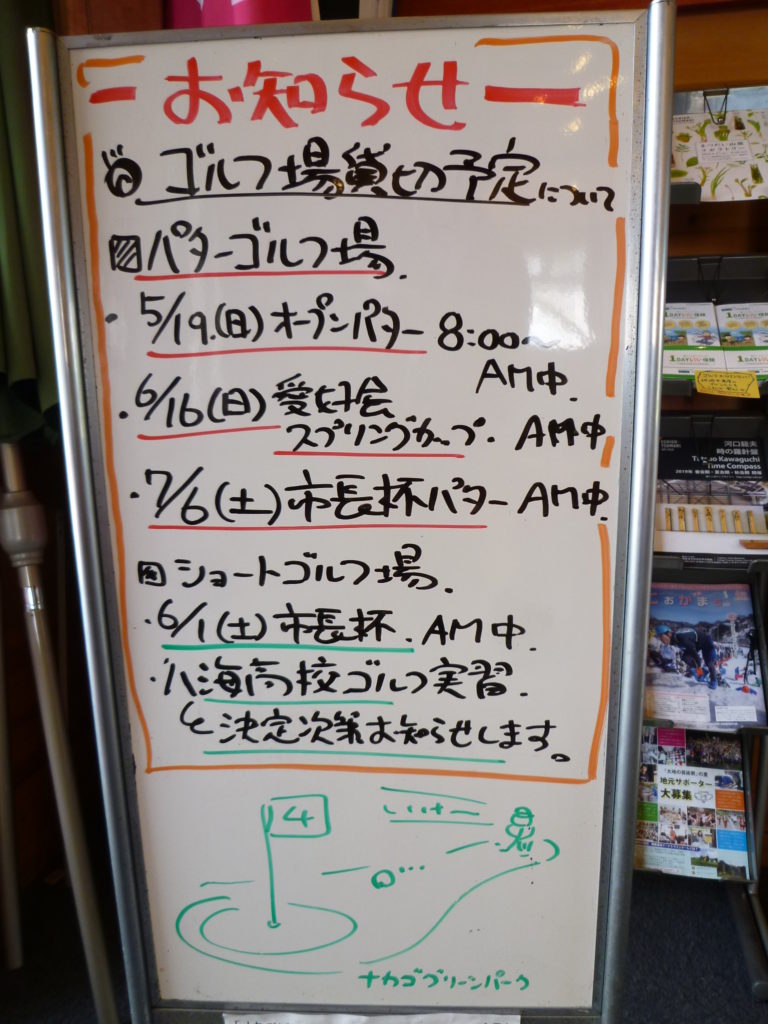 ー お知らせ ー
ゴルフ場貸切予定について
パターゴルフ場.
・5/19.(日) オープンパター 8:00〜
AM中.
・6/16(日) 愛好会
スプリングカップ. AM中.
・7/6(土) 市長杯パター AM中.
ショートゴルフ場.
・6/1(土) 市長杯. AM中.
・八海高校ゴルフ実習.
決定次第お知らせします。
4
いけー
ナカゴグリーンパーク
1DAYレジャー保険
河口龍夫
時の羅針盤
Kawaguchi
Time Compass
「大地の芸術祭」の里
地元サポーター
大募集